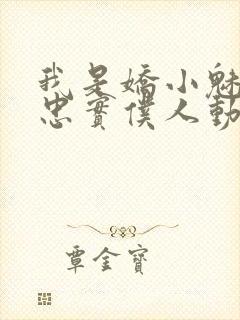 我是嬌小魅
忠實僕人勳
覃金寶